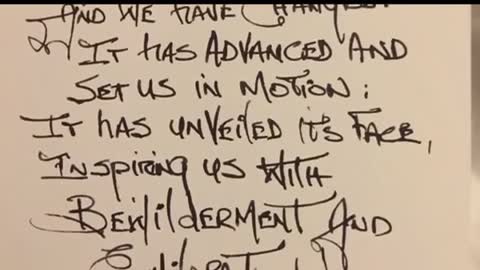 AND WE HAVE CHANGED.
IT HAS ADVANCED AND
SET US IN MOTION:
IT HAS UNVEILED IT'S FACE,
INSPIRING US WITH
BEWILDERMENT AND